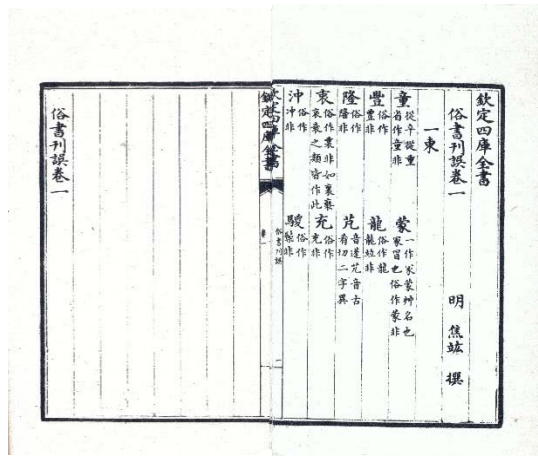 欽定四庫全書
俗書刊誤卷一
明 焦竑 撰
一東
童 從辛從重省作童非 蒙 一作冡蒙艸名也冡冒也俗作蒙非
豐 俗作豊非 龍 俗作龍竝非
隆 俗作隆非 芃 音蓬艽音古肴切二字異
衷 俗作衷非如裏褻之類皆作此 充 俗作充非
沖 俗作冲非 騣 俗作非
欽定四庫全書
俗書刊誤
卷一
俗書刊誤卷一